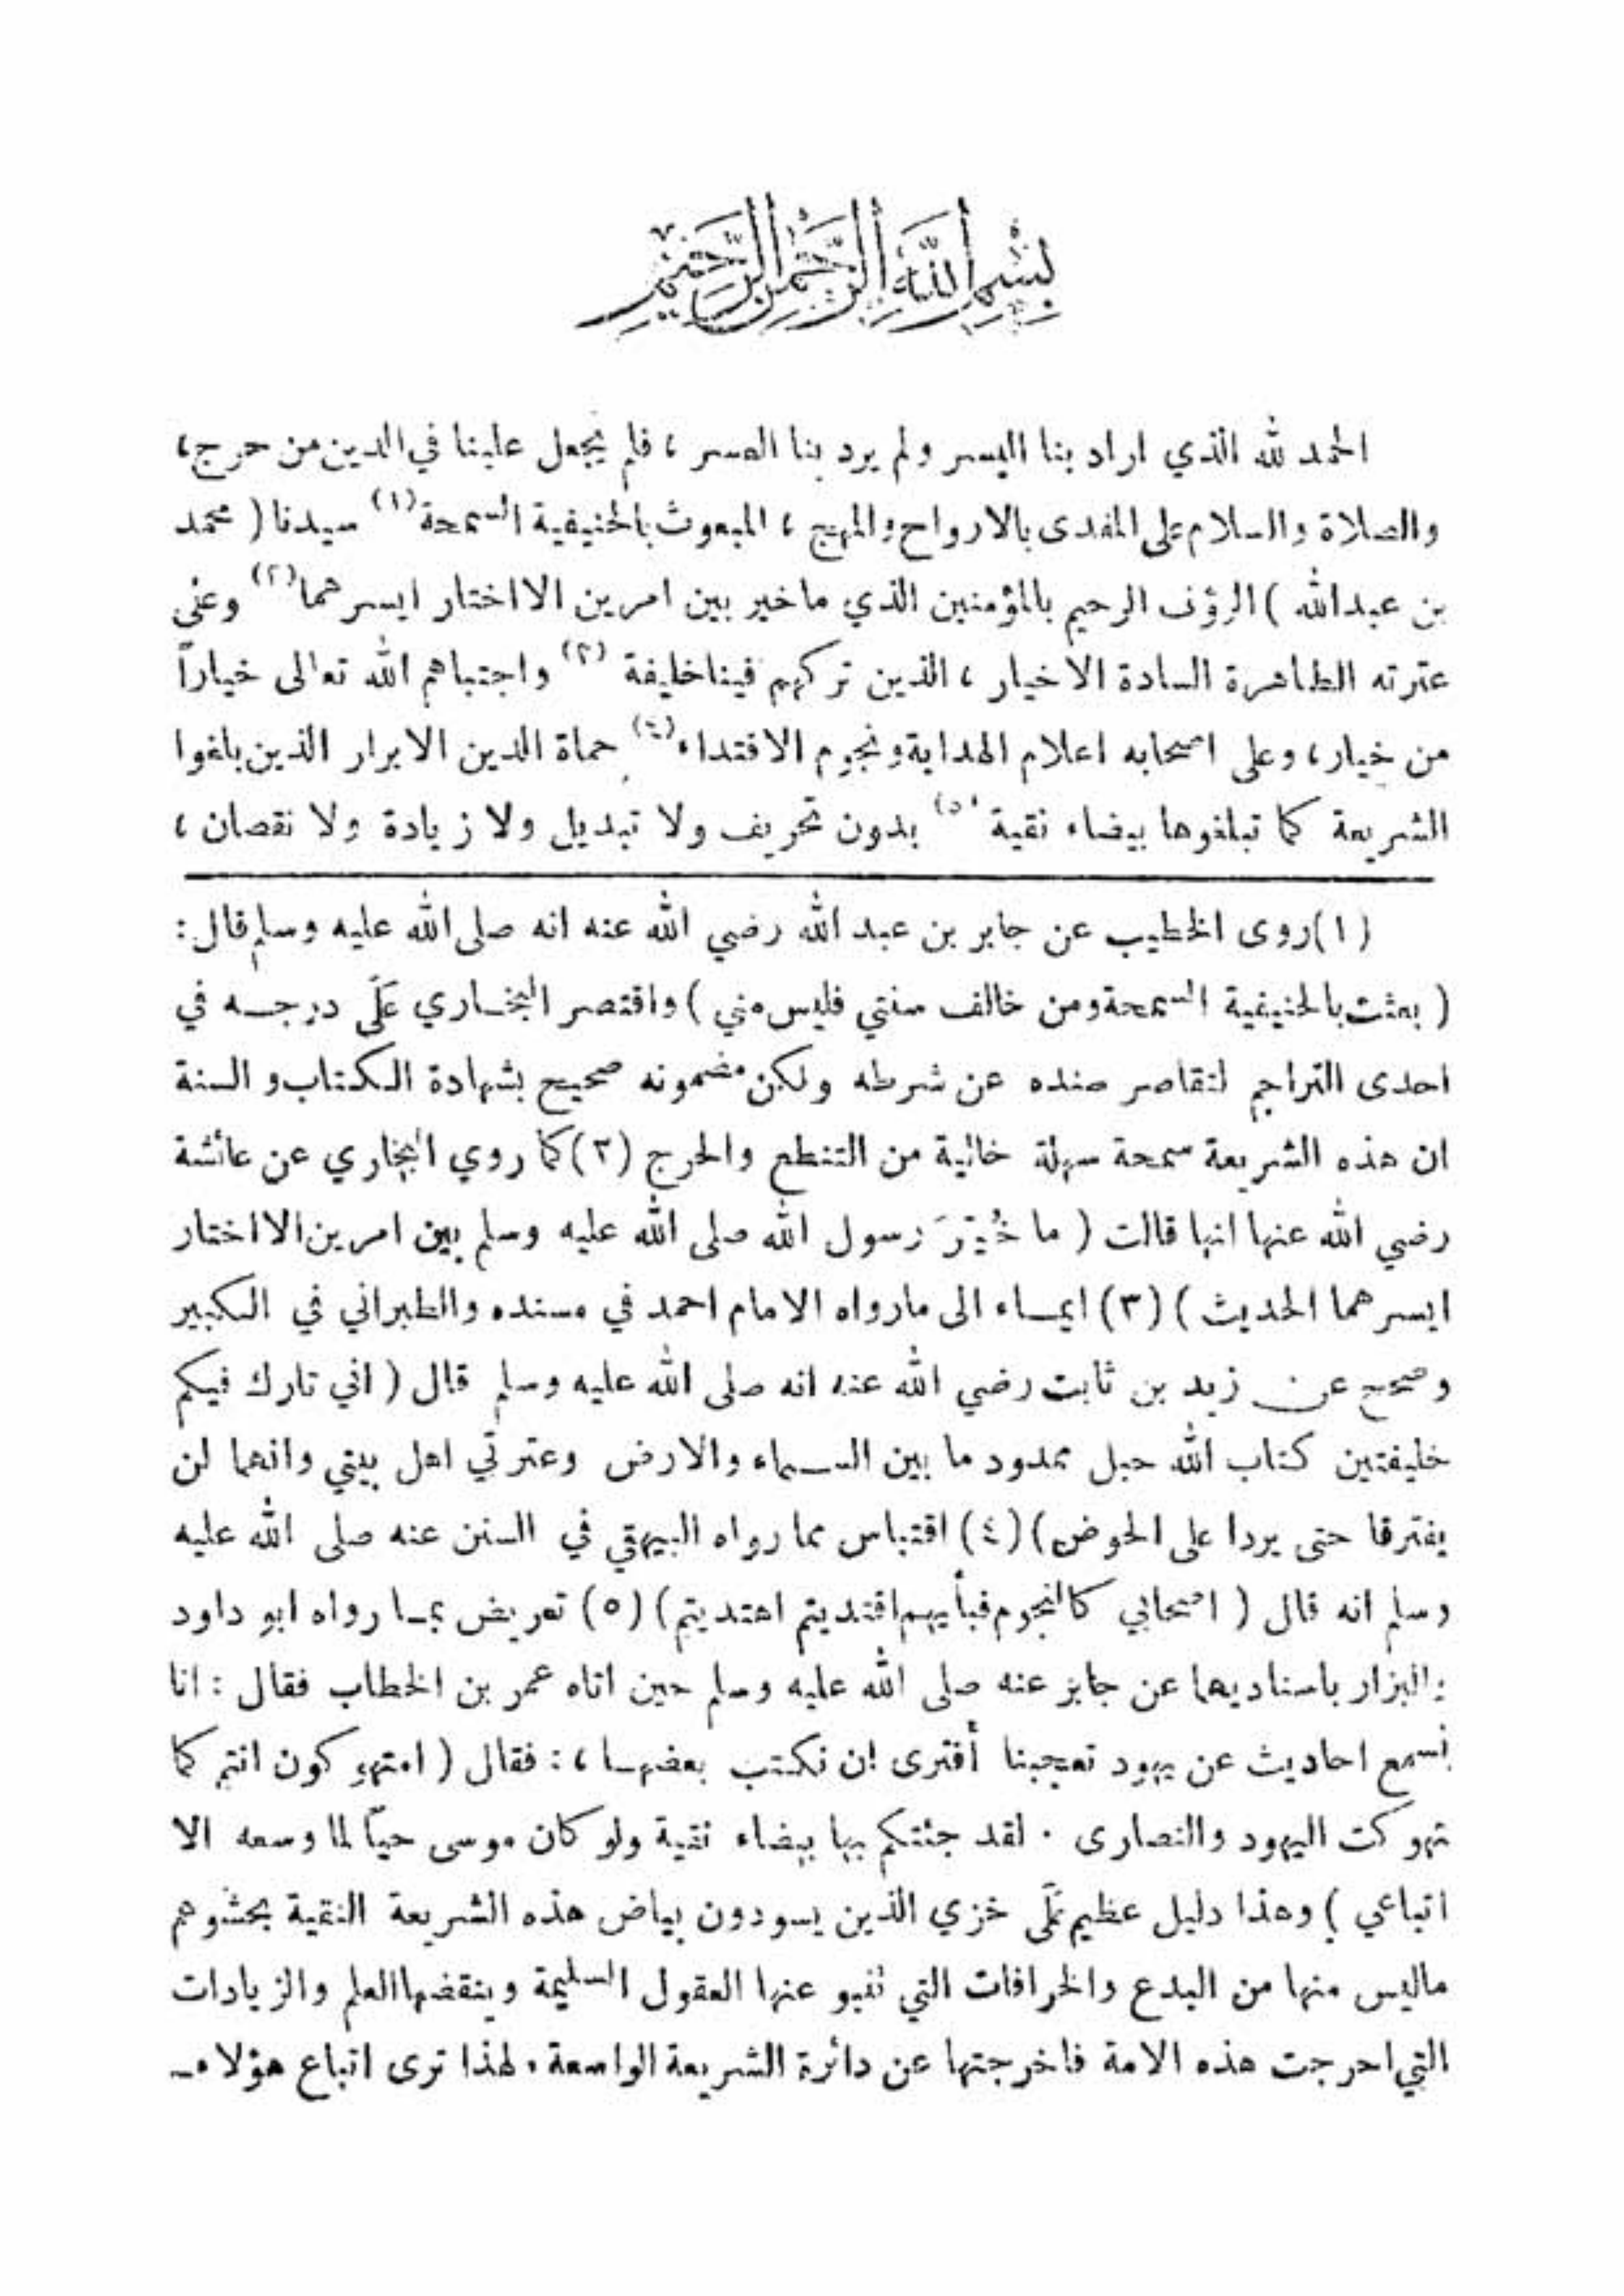 بِسْمِ اللَّهِ الرَّحْمَٰنِ الرَّحِيمِ
الحمد لله الذي اراد بنا اليسر ولم يرد بنا العسر ، فلم يجعل علينا في الدين من حرج ،
والصلاة والسلام على المفدى بالارواح والمهج ، المبعوث بالحنيفية السمحة (١) سيدنا ( محمد
بن عبدالله ) الرؤف الرحيم بالمؤمنين الذي ما خير بين امرين الا اختار ايسرهما (٢) وعلى
عترته الطاهرة السادة الاخيار ، الذين تركهم فينا خليفة (٣) واجتباهم الله تعالى خياراً
من خيار ، وعلى اصحابه اعلام الهداية ونجوم الاقتداء (٤) حماة الدين الابرار الذين بلغوا
الشريعة كما تبلغوها بيضاء نقية (٥) بدون تحريف ولا تبديل ولا زيادة ولا نقصان ،
(١) روى الخطيب عن جابر بن عبد الله رضي الله عنه انه صلى الله عليه وسلم قال :
( بعثت بالحنيفية السمحة ومن خالف سنتي فليس مني ) واقتصر البخاري عَلَى درجه في
احدى التراجم لتقاصر سنده عن شرطه ولكن مضمونه صحيح بشهادة الكتاب و السنة
ان هذه الشريعة سمحة سهلة خالية من التنطع والحرج (٢) كما روي البخاري عن عائشة
رضي الله عنها انها قالت ( ما خُيِّرَ رسول الله صلى الله عليه وسلم بين امرين الا اختار
ايسرهما الحديث ) (٣) ايماء الى مارواه الامام احمد في مسنده والطبراني في الكبير
وصحح عن زيد بن ثابت رضي الله عنه انه صلى الله عليه وسلم قال ( اني تارك فيكم
خليفتين كتاب الله حبل ممدود ما بين السماء والارض وعترتي اهل بيتي وانهما لن
يفترقا حتى يردا على الحوض ) (٤) اقتباس مما رواه البيهقي في السنن عنه صلى الله عليه
وسلم انه قال ( اصحابي كالنجوم فبأيهم اقتديتم اهتديتم ) (٥) تعريض بما رواه ابو داود
والبزار باسناديهما عن جابر عنه صلى الله عليه وسلم حين اتاه عمر بن الخطاب فقال : انا
نسمع احاديث عن يهود تعجبنا أفترى ان نكتب بعضها ، : فقال ( امتهوكون انتم كما
تهوكت اليهود والنصارى . لقد جئتكم بها بيضاء نقية ولو كان موسى حياً لما وسعه الا
اتباعي ) وهذا دليل عظيم عَلَى خزي الذين يسودون بياض هذه الشريعة النقية بحشوهم
ماليس منها من البدع والخرافات التي تنبو عنها العقول السليمة وينقضها العلم والزيادات
التي احرجت هذه الامة فاخرجتها عن دائرة الشريعة الواسعة . لهذا ترى اتباع هؤلاء ـ